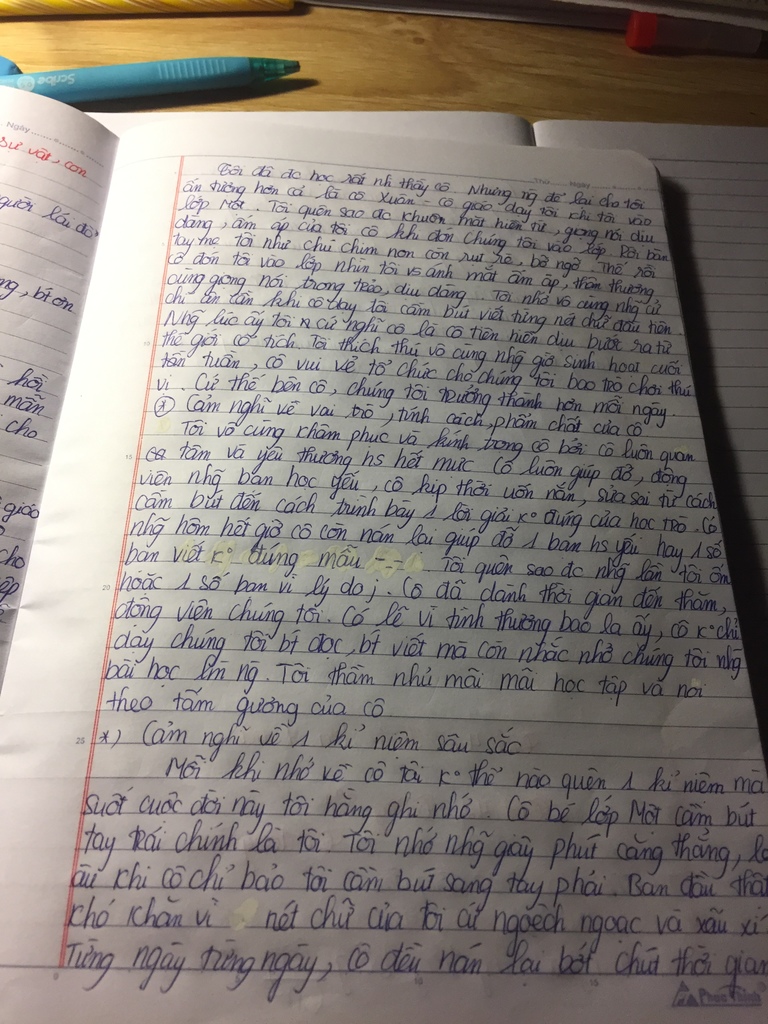 Scribe
Ngày
sự vật, con
người lái đò
ng, biết ơn
hồi
mẫn
cho
giáo
cho
Tôi đã đc học rất nh thầy cô. Nhưng ng để lại cho tôi
ấn tượng hơn cả là cô Xuân - cô giáo dạy tôi khi tôi vào
lớp Một. Tôi quên sao đc khuôn mặt hiền từ, giọng nói dịu
dàng, ấm áp của cô khi đón chúng tôi vào lớp. Rời bàn
tay mẹ tôi như chú chim non còn rụt rè, bỡ ngỡ. Thế rồi
cô đón tôi vào lớp nhìn tôi vs ánh mắt ấm áp, thân thương
cùng giọng nói trong trẻo, dịu dàng. Tôi nhớ vô cùng nhg cử
chỉ ân cần khi cô dạy tôi cầm bút viết từng nét chữ đầu tiên.
Nhg lúc ấy tôi cứ nghĩ cô là cô tiên hiền dịu bước ra từ
thế giới cổ tích. Tôi thích thú vô cùng nhg giờ sinh hoạt cuối
tuần, cô vui vẻ tổ chức cho chúng tôi bao trò chơi thú
vị. Cứ thế bên cô, chúng tôi trưởng thành hơn mỗi ngày.
* Cảm nghĩ về vai trò, tính cách, phẩm chất của cô
Tôi vô cùng khâm phục và kính trọng cô bởi cô luôn quan
tâm và yêu thương hs hết mực. Cô luôn giúp đỡ, động
viên nhg bạn học yếu, cô kịp thời uốn nắn, sửa sai từ cách
cầm bút đến cách trình bày 1 lời giải k° đúng của học trò. Có
nhg hôm hết giờ cô còn nán lại giúp đỡ 1 bạn hs yếu hay 1 số
bạn viết k° đúng mẫu ... Tôi quên sao đc nhg lần tôi ốm
hoặc 1 số bạn vì lý do j. Cô đã dành thời gian đến thăm,
động viên chúng tôi. Có lẽ vì tình thương bao la ấy, cô k° chỉ
dạy chúng tôi bt đọc, bt viết mà còn nhắc nhở chúng tôi nhg
bài học lm ng. Tôi thầm nhủ mãi mãi học tập và noi
theo tấm gương của cô
25 *) Cảm nghĩ về 1 kỉ niệm sâu sắc
Mỗi khi nhớ về cô tôi k° thể nào quên 1 kỉ niệm mà
suốt cuộc đời này tôi hằng ghi nhớ. Cô bé lớp Một cầm bút
tay trái chính là tôi. Tôi nhớ nhg giây phút căng thẳng, lo
âu khi cô chỉ bảo tôi cầm bút sang tay phải. Ban đầu thật
khó khăn vì nét chữ của tôi cứ ngoệch ngoạc và xấu xí
Từng ngày từng ngày, cô đều nán lại bớt chút thời gian